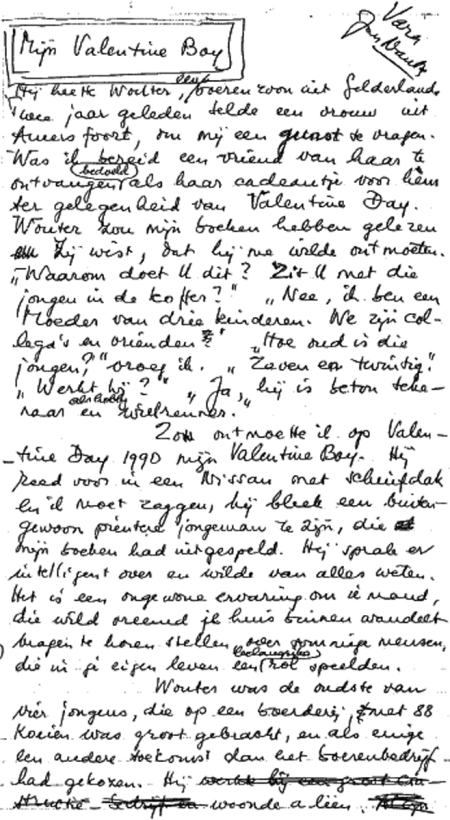 Mijn Valentine Boy
Vara
Hij heette Wouter, een boerenzoon uit Gelderland.
Twee jaar geleden belde een vrouw uit
Amersfoort, om mij een gunst te vragen.
Was ik bereid een vriend van haar te
ontvangen, bedoeld als haar cadeautje voor hem
ter gelegenheid van Valentine Day.
Wouter zou mijn boeken hebben gelezen
en zij wist, dat hij me wilde ontmoeten.
„Waarom doet U dit? Zit U met die
jongen in de koffer?" „Nee, ik ben een
moeder van drie kinderen. We zijn col-
lega's en vrienden." „Hoe oud is die
jongen?," vroeg ik. „Zeven en twintig."
„Werkt hij?" „Ja, hij is beton teke-
naar en als hobby wielrenner."
Zo ontmoette ik op Valen-
-tine Day 1990 mijn Valentine Boy. Hij
reed voor in een Nissan met schuifdak
en ik moet zeggen, hij bleek een buiten-
gewoon pientere jongeman te zijn, die
mijn boeken had uitgespeld. Hij sprak er
intelligent over en wilde van alles weten.
Het is een ongewone ervaring om iemand,
die wild vreemd je huis binnen wandelt
vragen te horen stellen over sommige mensen,
die in je eigen leven een belangrijke rol speelden.
Wouter was de oudste van
vier jongens, die op een boerderij met 88
koeien was groot gebracht, en als enige
een andere toekomst dan het boerenbedrijf
had gekozen. Hij werkte bij een groot con-
structie-bedrijf en woonde alleen.